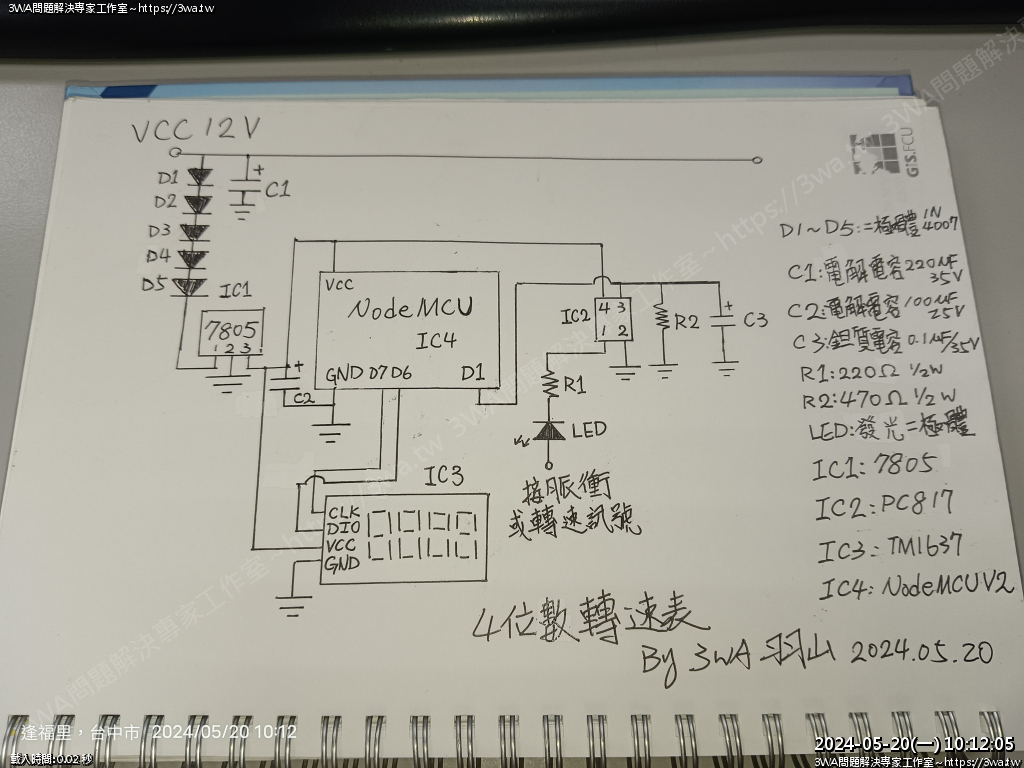 3WA問題解決專家工作室~https://3wa.tw
VCC 12V
D1
D2
D3
D4
D5
C1
IC1
7805
1 2 3
C2
VCC
NodeMCU
IC4
GND D7 D6 D1
IC2
4 3
1 2
R2
C3
R1
LED
接脈衝
或轉速訊號
IC3
CLK
DIO
VCC
GND
GIS.FCU
D1~D5:二極體 1N4007
C1:電解電容 220uF 35V
C2:電解電容 100uF 25V
C3:鉭質電容 0.1uF/35V
R1:220Ω 1/2W
R2:470Ω 1/2W
LED:發光二極體
IC1:7805
IC2:PC817
IC3:TM1637
IC4:NodeMCU V2
4位數轉速表
By 3WA 羽山 2024.05.20
逢福里，台中市 2024/05/20 10:12
載入時間:0.02 秒
2024-05-20(一) 10:12:05
3WA問題解決專家工作室~https://3wa.tw